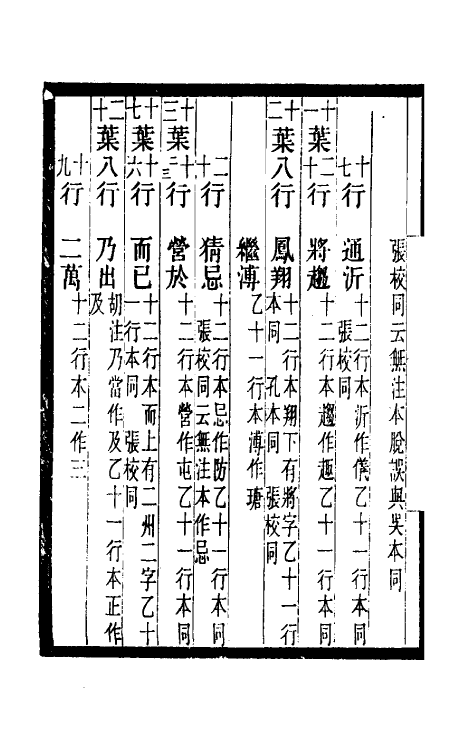 張校同云無注本脫誤與吳本同
十七行 通沂 十二行本沂作僟乙十一行本同
張校同
十一葉二十行 將趨 十二行本趨作趣乙十一行本同
十二葉八行 鳳翔 十二行本翔下有將字乙十一行
本同 孔本同 張校同
繼溥 乙十一行本溥作瑭
二十行 猜忌 十二行本忌作防乙十一行本同
張校同云無注本作忌
十三葉十二三行 營於 十二行本營作屯乙十一行本同
十七葉十六行 而已 十二行本而上有二州二字乙十
一行本同 張校同
二十葉八行 乃出 胡注乃當作及乙十一行本正作
及
十九行 二萬 十二行本二作三